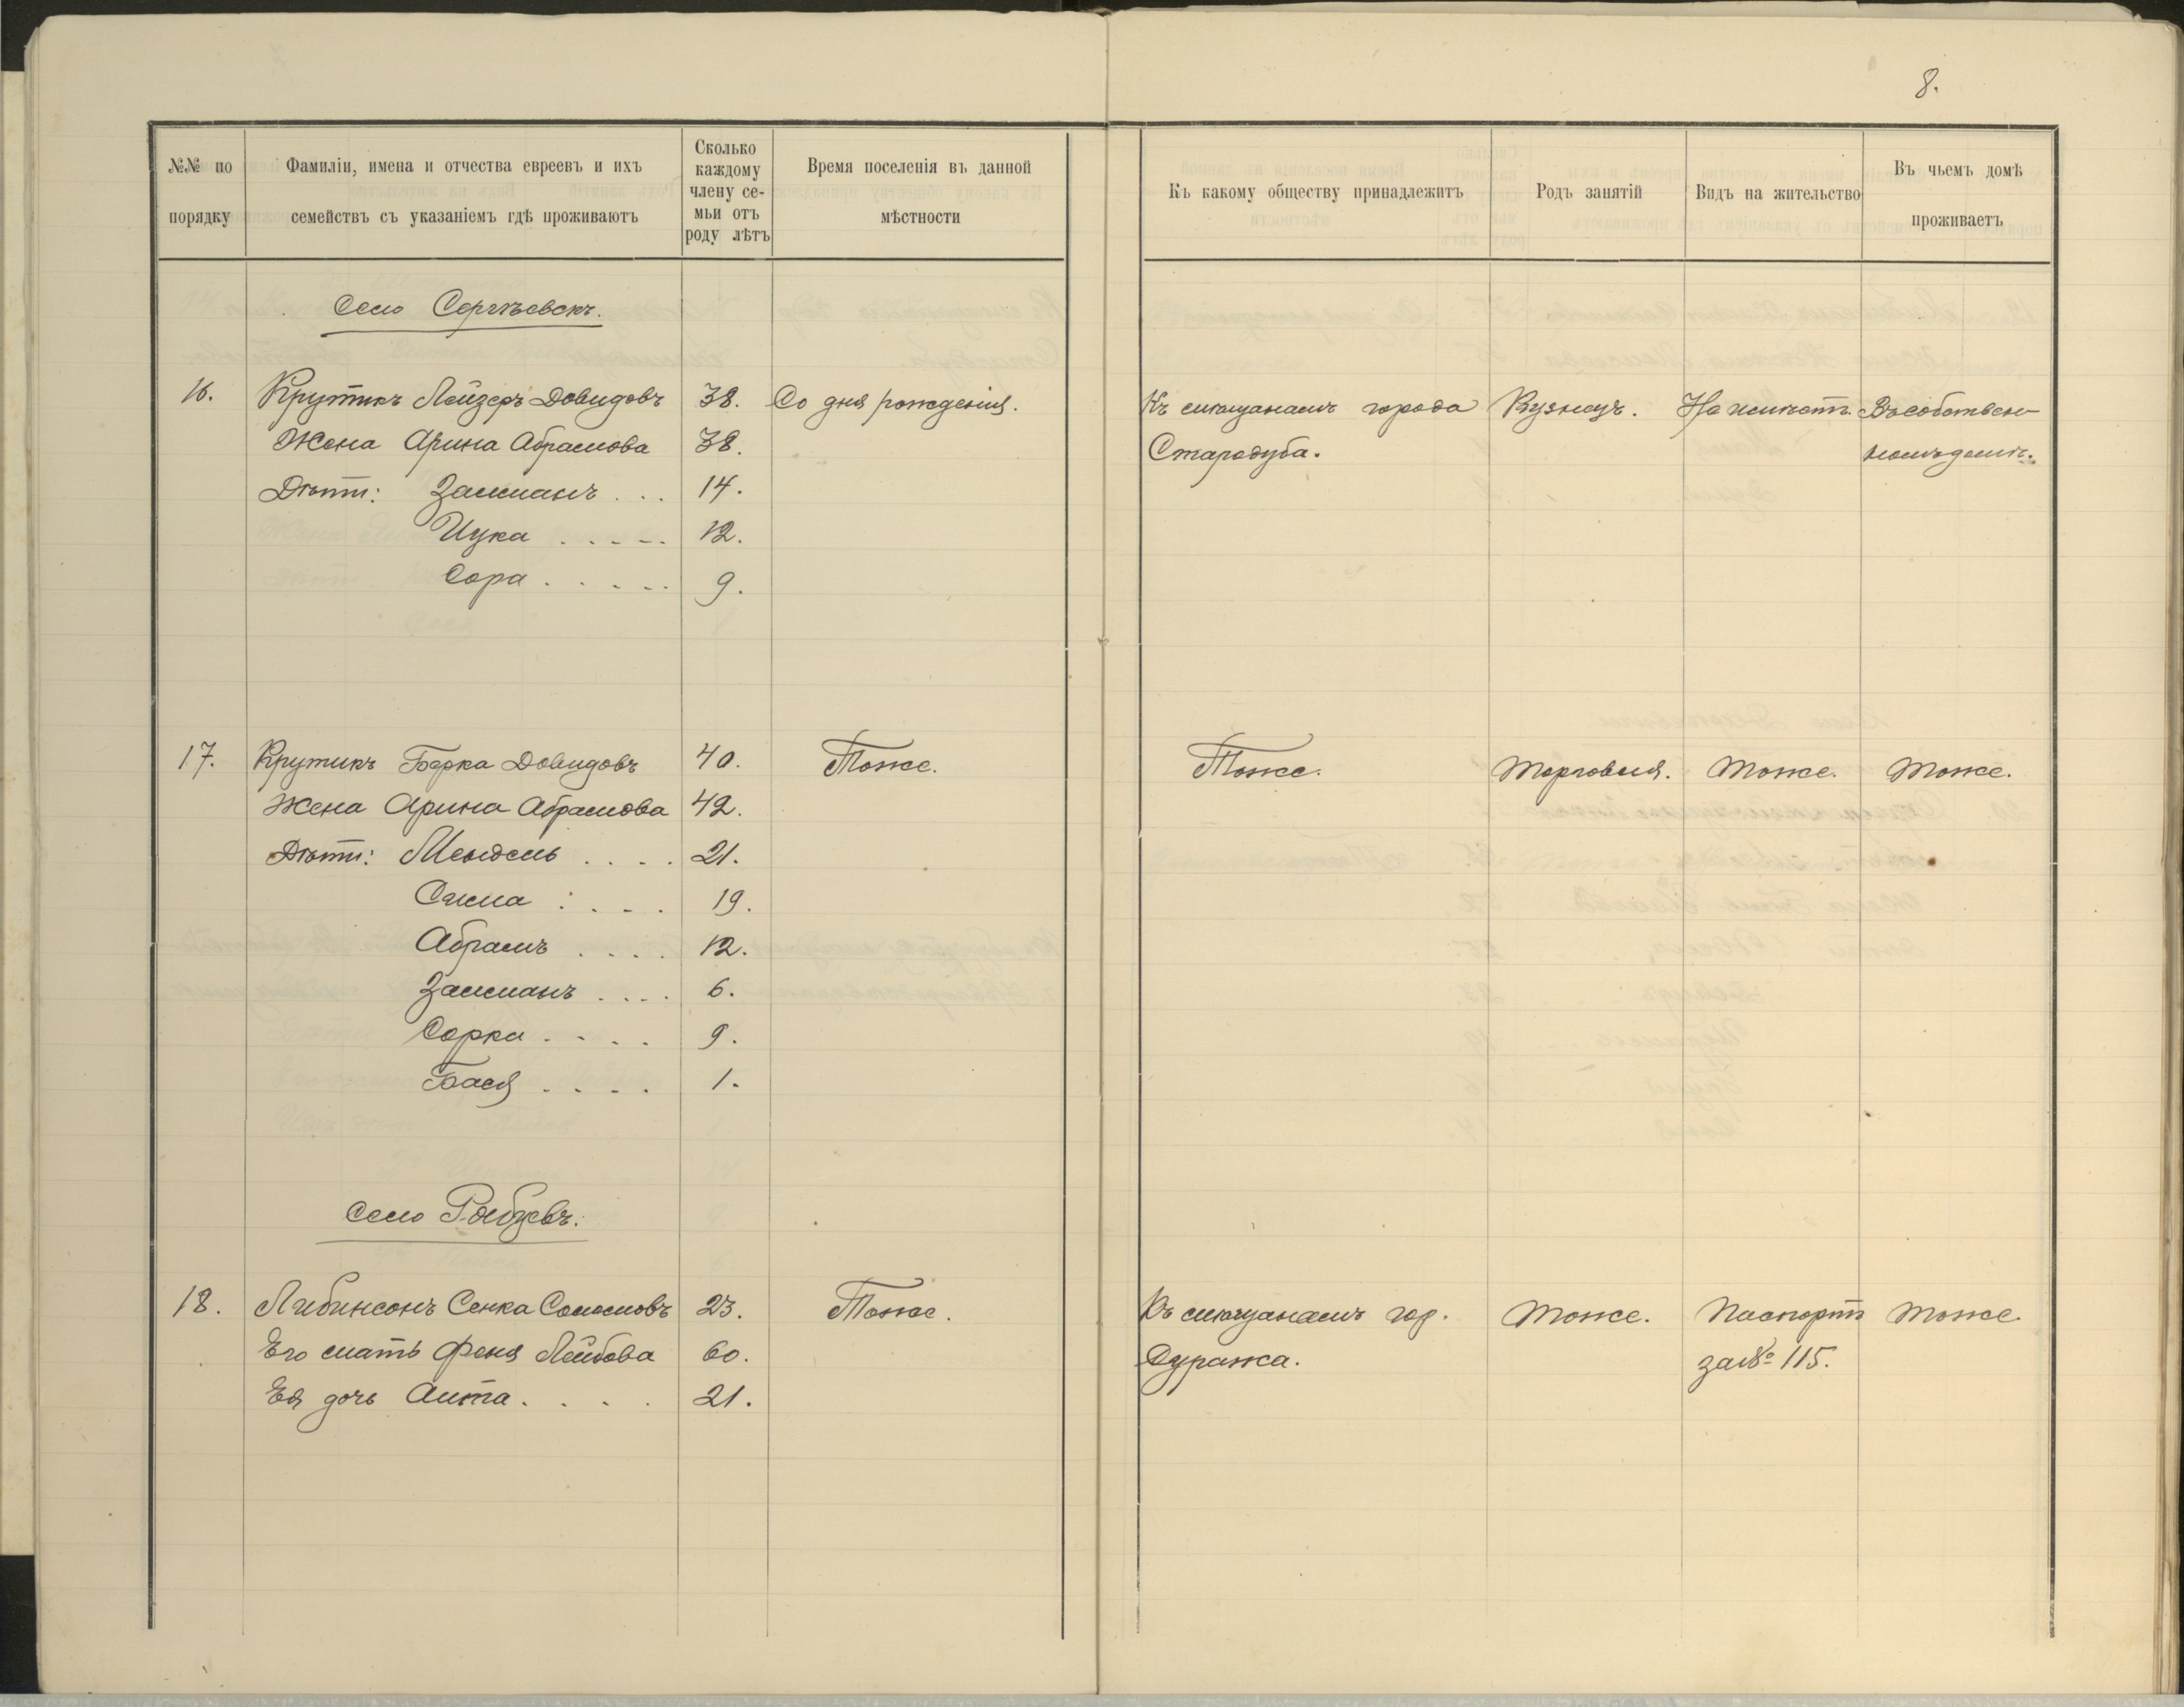 8.
№№ по порядку
Фамиліи, имена и отчества евреевъ и ихъ семействъ съ указаніемъ гдѣ проживаютъ
Сколько каждому члену семьи отъ роду лѣтъ
Время поселенія въ данной мѣстности
Къ какому обществу принадлежитъ
Родъ занятій
Видъ на жительство
Въ чьемъ домѣ проживаетъ
Село Сергѣевскъ.
16. Крутикъ Лейзеръ Довидовъ 38. Со дня рожденія. Къ мѣщанамъ города Кузнецъ. Не имѣетъ. Въ собствен-
Жена Арина Абрамова 38. Стародуба. номъ домѣ.
Дѣти: Залманъ . . . 14.
Ицка . . . . . 12.
Сора . . . . . 9.
17. Крутикъ Борка Довидовъ 40. Тоже. Тоже. Торговля. Тоже. Тоже.
Жена Арина Абрамова 42.
Дѣти: Мендель . . . . 21.
Сама . . . . 19.
Абрамъ . . . . 12.
Залманъ . . . . 6.
Сорка . . . . 9.
Бася . . . . 1.
Село
18. Либинсонъ Сенка Соломовъ 23. Тоже. Къ мѣщанамъ гор. Тоже. Паспортъ Тоже.
Его мать Феня Лейбова 60. Суража. за № 115.
Ея дочь . . . . 21.